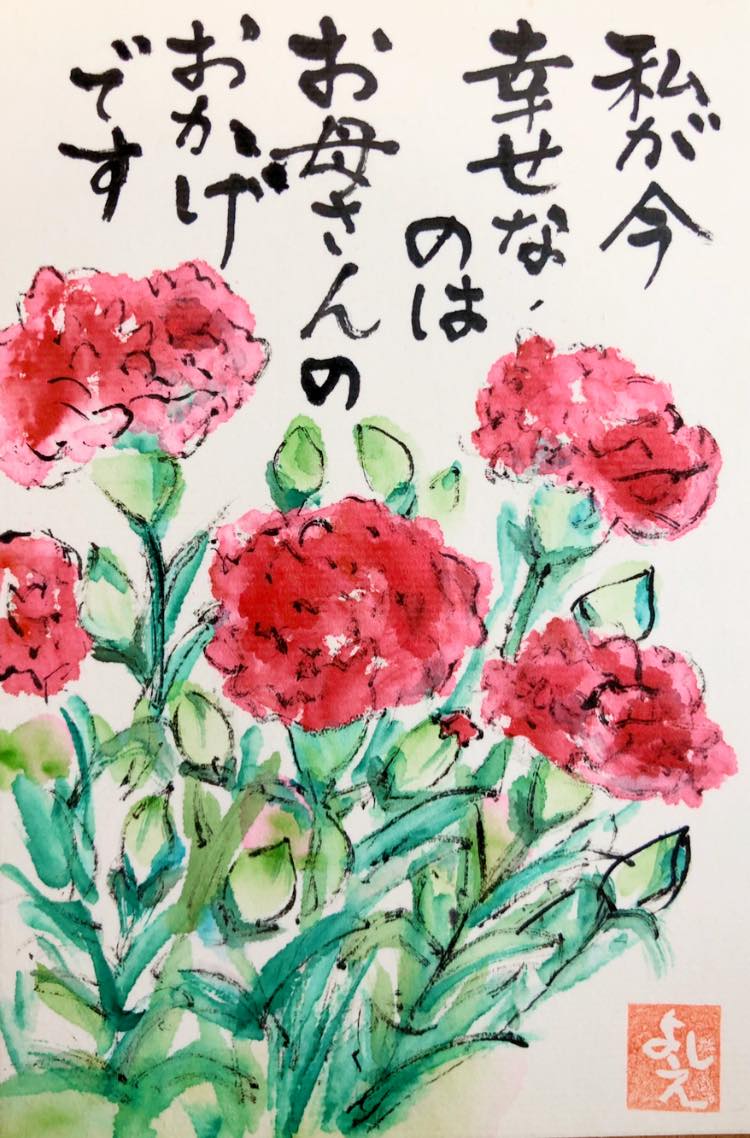 私が今
幸せな
のは
お母さんの
おかげ
です
よしえ